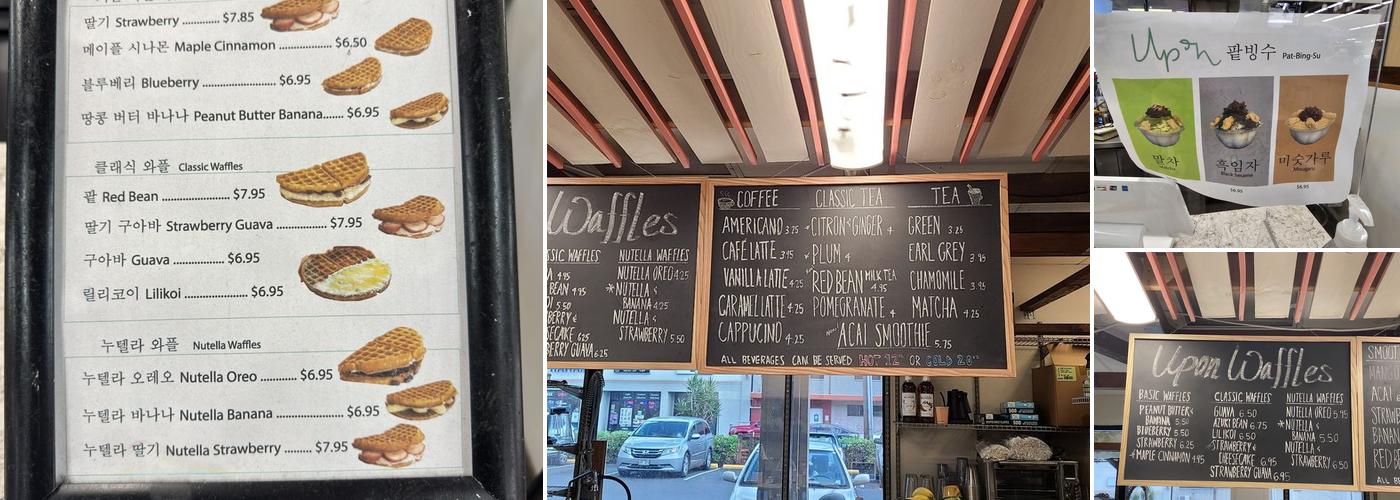 딸기 Strawberry ............ $7.85
메이플 시나몬 Maple Cinnamon ................ $6.50
블루베리 Blueberry ........................ $6.95
땅콩 버터 바나나 Peanut Butter Banana....... $6.95
클래식 와플 Classic Waffles
팥 Red Bean ...................... $7.95
딸기 구아바 Strawberry Guava ......... $7.95
구아바 Guava ................ $6.95
릴리코이 Lilikoi ...................... $6.95
누텔라 와플 Nutella Waffles
누텔라 오레오 Nutella Oreo ............ $6.95
누텔라 바나나 Nutella Banana ...................... $6.95
누텔라 딸기 Nutella Strawberry ......... $7.95
Waffles
SSIC WAFFLES
A 4.95
BEAN 4.95
OI 5.50
BERRY &
ESECAKE 6.25
BERRY GUAVA 6.25
NUTELLA WAFFLES
NUTELLA OREO 4.25
*NUTELLA &
BANANA 4.25
NUTELLA &
STRAWBERRY 5.50
COFFEE
AMERICANO 3.25
CAFÉ LATTE 3.95
VANILLA LATTE 4.25
CARAMEL LATTE 4.25
CAPPUCINO 4.25
CLASSIC TEA
CITRON & GINGER 4
PLUM 4
RED BEAN MILK TEA 4.95
POMEGRANATE 4
ACAI SMOOTHIE 5.75
TEA
GREEN 3.25
EARL GREY 3.95
CHAMOMILE 3.95
MATCHA 4.25
ALL BEVERAGES CAN BE SERVED HOT 12oz OR COLD 20oz
Upon 팥빙수 Pat-Bing-Su
말차
Matcha
흑임자
Black Sesame
$6.95
미숫가루
Misugaru
$6.95
Upon Waffles
BASIC WAFFLES
PEANUT BUTTER &
BANANA 5.50
BLUEBERRY 5.50
STRAWBERRY 6.25
*MAPLE CINNAMON 4.95
CLASSIC WAFFLES
GUAVA 6.50
AZUKI BEAN 6.75
LILIKOI 6.50
STRAWBERRY &
CHEESECAKE 6.95
STRAWBERRY GUAVA 6.95
NUTELLA WAFFLES
NUTELLA OREO 5.95
*NUTELLA &
BANANA 5.50
NUTELLA &
STRAWBERRY 6.50
SMOOT
MANGO
ACAI
STRAW
BANAN
RED BE
ALL